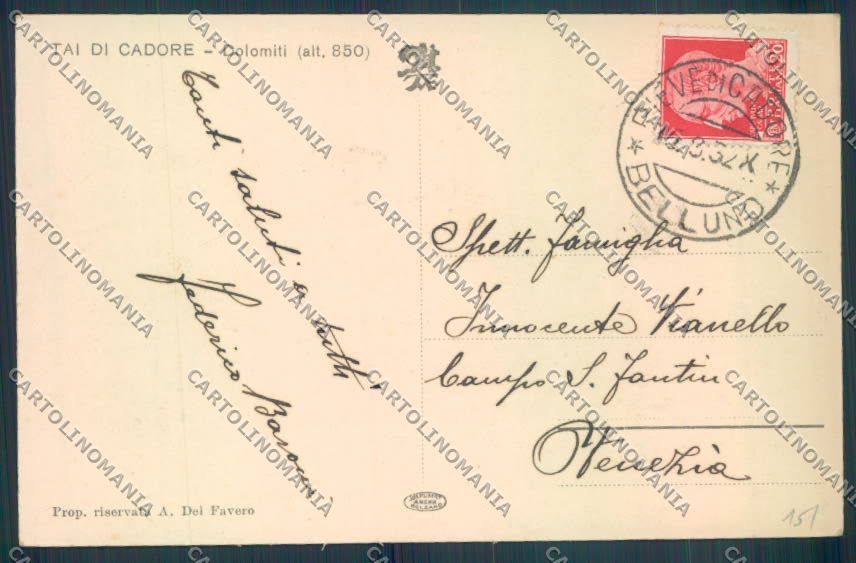 TAI DI CADORE - Dolomiti (alt. 850)
Tanti saluti a tutti
Federico Barozzi
PIEVE DI CADORE
BELLUNO
Spett. Famiglia
Innocente Vianello
Campo S. Fantin
Venezia
Prop. riservata A. Del Favero
151
CARTOLINOMANIA